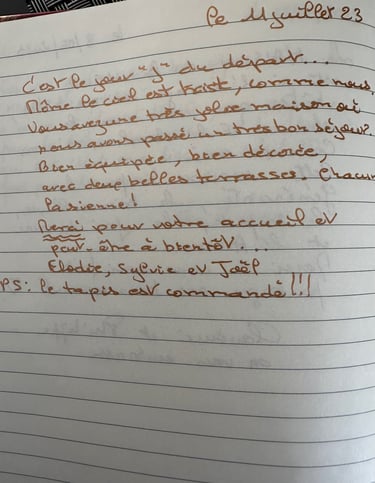 le 11 juillet 23
C'est le jour "j" du départ...
Même le ciel est triste, comme nous.
Vous avez une très jolie maison où
nous avons passé un très bon séjour.
Bien équipée, bien décorée,
avec deux belles terrasses. Chacun
la sienne!
Merci pour votre accueil et
peut-être à bientôt...
Elodie, Sylvie et Joël
PS: le tapis est commandé!!!